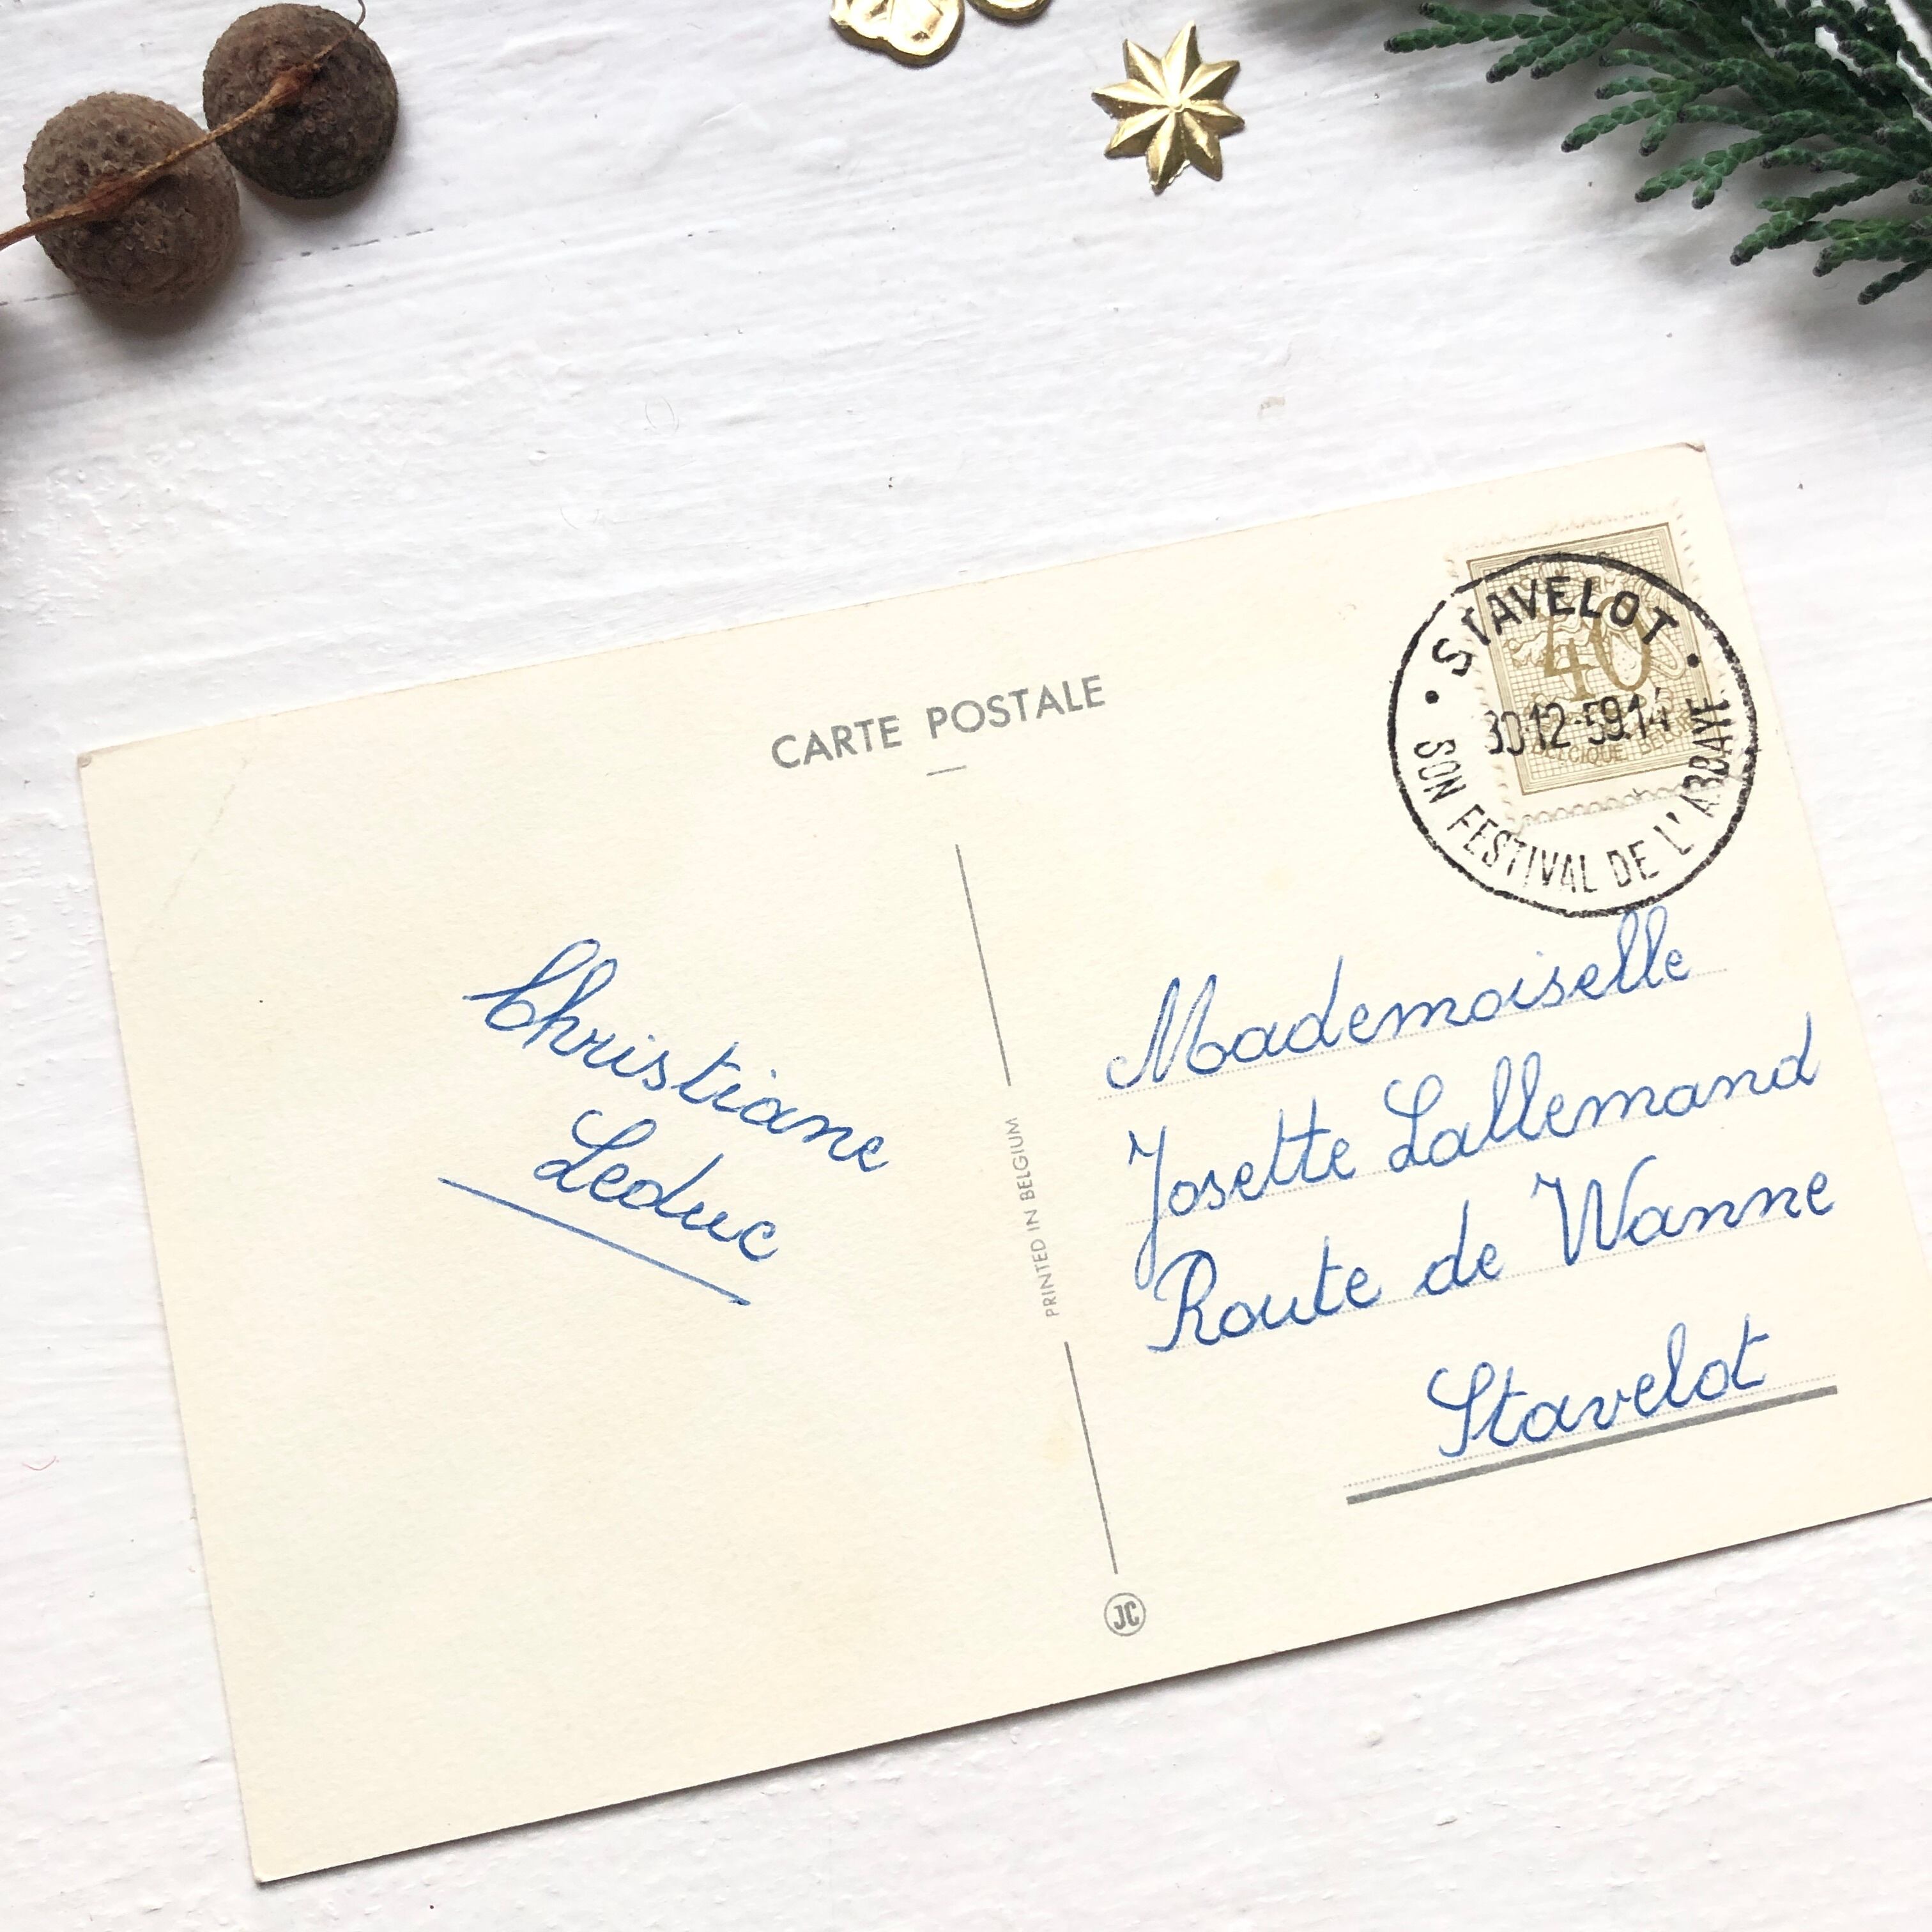 CARTE POSTALE
STAVELOT
40
30-12-59.14
BELGIQUE BEL
SON FESTIVAL DE L'ABBAYE
Christiane
Leduc
PRINTED IN BELGIUM
JC
Mademoiselle
Josette Lallemand
Route de Wanne
Stavelot